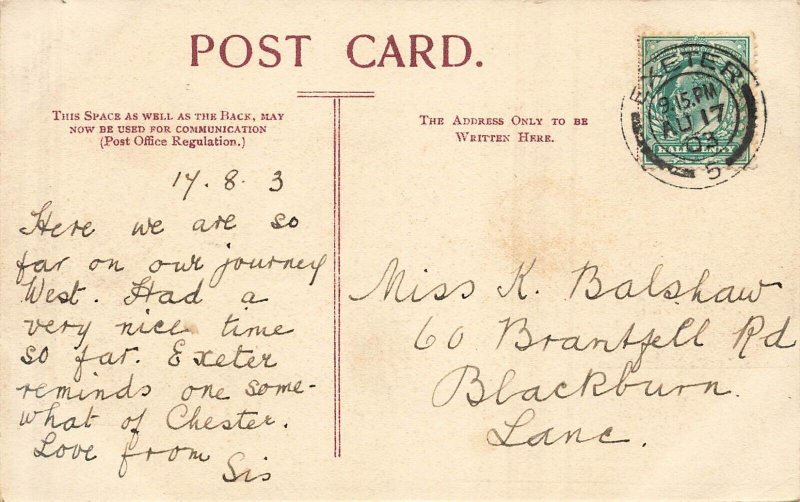 POST CARD.
THIS SPACE AS WELL AS THE BACK, MAY
NOW BE USED FOR COMMUNICATION
(Post Office Regulation.)
THE ADDRESS ONLY TO BE
WRITTEN HERE.
EXETER
9.15.PM
AU 17
03
5
HALFPENNY
17.8.3
Here we are so
far on our journey
West. Had a
very nice time
so far. Exeter
reminds one some-
what of Chester.
Love from
Sis
Miss K. Balshaw
60 Brantfell Rd
Blackburn.
Lanc.